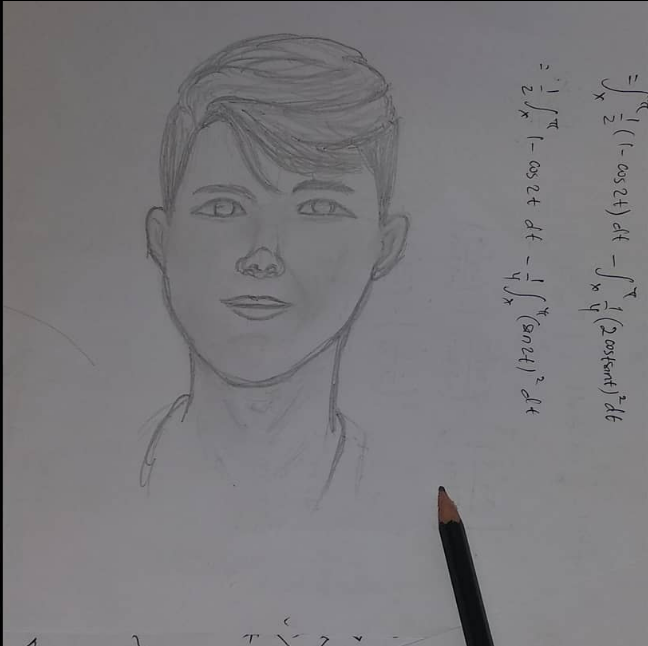 = ∫ₓ^π 1/2 (1 - cos2t) dt - ∫ₓ^π 1/4 (2costsint)² dt
= 1/2 ∫ₓ^π 1 - cos2t dt - 1/4 ∫ₓ^π (sin2t)² dt